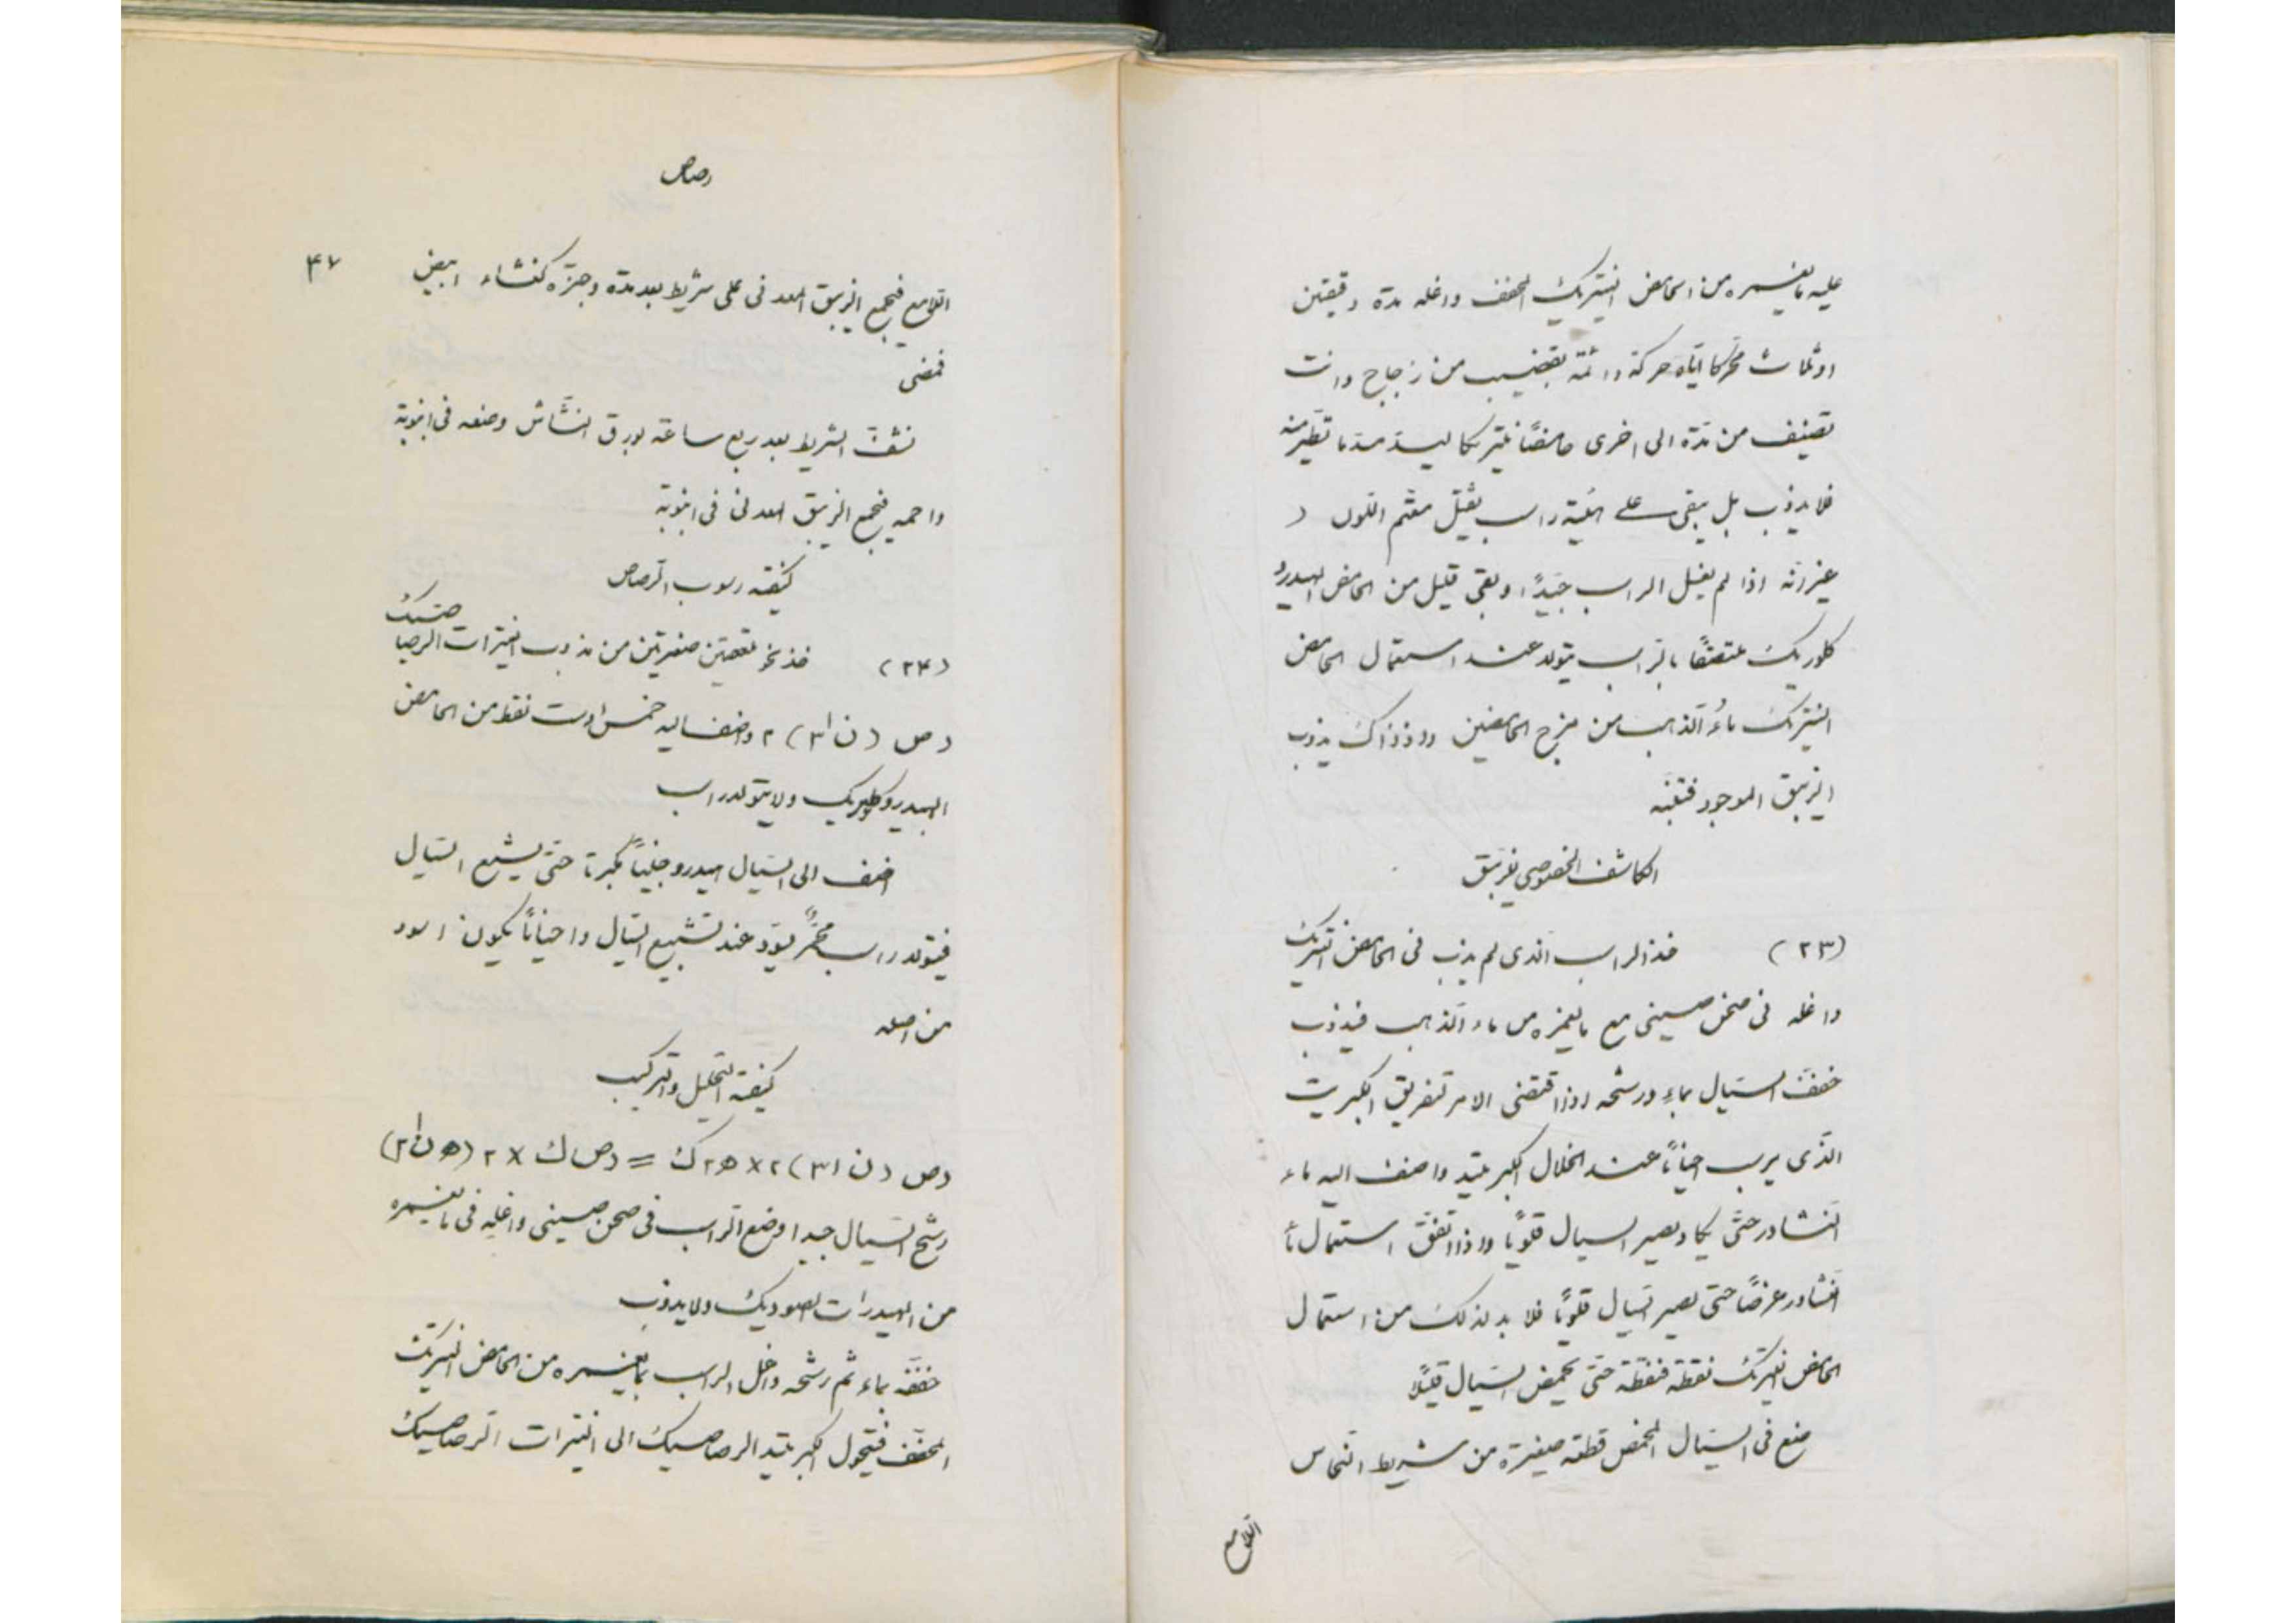 عليه ما يغمره من الحامض النيتريك المخفف واغله مدة دقيقتين
او ثلاث محركا اياه حركة دائمة بقضيب من زجاج وانت
تضيف من مدة الى اخرى حامضًا نيتريكا ليسد مسد ما تطير منه
فلا يذوب بل يبقى على هيئة راسب ثقيل مقتم اللون (
غير انه اذا لم يغسل الراسب جيدًا وبقى قليل من الحامض الهيدرو
كلوريك ملتصقًا بالراسب يتولد عند استعمال الحامض
النيتريك ماءُ الذهب من مزج الحامضين واذ ذاك يذوب
الزيبق الموجود فتنبه
الكاشف الخصوصي للزيبق
(٢٣) خذ الراسب الذى لم يذب فى الحامض النيتريك
واغله فى صحن صينى مع ما يغمره من ماء الذهب فيذوب
خفف السيال بماءٍ ورشحه اذا اقتضى الامر لتفريق الكبريت
الذى يرسب احيانًا عند انحلال الكبريتيد واضف اليه ماء
النشادر حتى يكاد يصير السيال قلويًا واذا اتفق استعمال ماء
النشادر عرضًا حتى يصير السيال قلويًا فلا بد لذلك من استعمال
الحامض النيتريك نقطة فنقطة حتى يحمض السيال قليلًا
ضع فى السيال المحمض قطعة صغيرة من شريط النحاس
اللامع
رصاص
٤٧
اللامع فيجمع الزيبق المعدنى على شريط بعد مدة وجيزة كغشاء ابيض
فضى
نشف الشريط بعد ربع ساعة بورق النشاش وضعه فى انبوبة
واحميه فيجمع الزيبق المعدنى فى انبوبة
كيفية رسوب الرصاص
(٢٤) خذ نحو قمحتين صغيرتين من مذوب النيترات الرصاصيك
رص (ن ا٣) ٢ واضف اليه خمس او ست نقط من الحامض
الهيدروكلوريك ولا يتولد راسب
اضف الى السيال هيدروجنيًا مكبرتا حتى يشبع السيال
فيتولد راسب محمرٌ يسوّد عند تشبيع السيال واحيانًا يكون اسود
من اصله
كيفية التحليل والتركيب
رص (ن ا٣) ٢ × ه٢ ك = رص ك × ٢ (ه ن ا٣)
رشح السيال جيدا وضع الراسب فى صحن صينى واغله فى ما يغمره
من الهيدرات الصوديك ولا يذوب
خففه بماء ثم رشحه واغل الراسب بما يغمره من الحامض النيتريك
المخفف فيتحول الكبريتيد الرصاصيك الى النيترات الرصاصيك